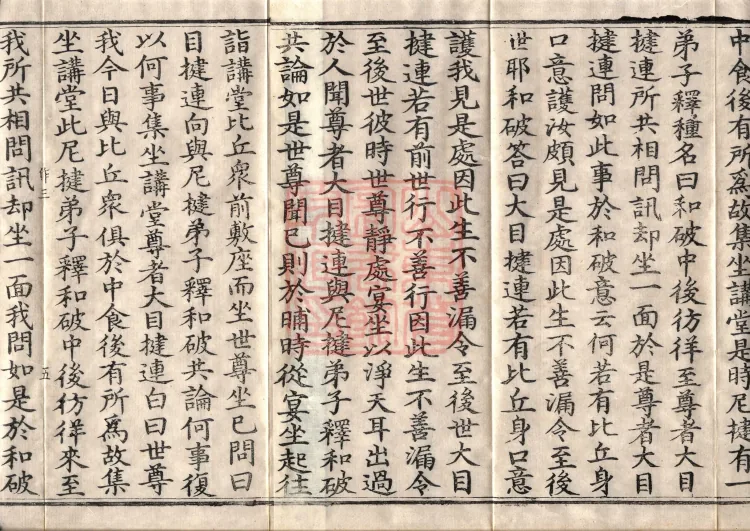 中食後有所為故集坐講堂是時尼揵有一
弟子釋種名曰和破中後彷徉至尊者大目
揵連所共相問訊却坐一面於是尊者大目
揵連問如此事於和破意云何若有比丘身
口意護汝頗見是處因此生不善漏令至後
世耶和破答曰大目揵連若有比丘身口意
護我見是處因此生不善漏令至後世大目
揵連若有前世行不善行因此生不善漏令
至後世彼時世尊靜處宴坐以淨天耳出過
於人聞尊者大目揵連與尼揵弟子釋和破
共論如是世尊聞已則於晡時從宴坐起往
詣講堂比丘衆前敷座而坐世尊坐已問曰
目揵連向與尼揵弟子釋和破共論何事復
以何事集坐講堂尊者大目揵連白曰世尊
我今日與比丘衆俱於中食後有所為故集
坐講堂此尼揵弟子釋和破中後彷徉來至
作三 五
我所共相問訊却坐一面我問如是於和破